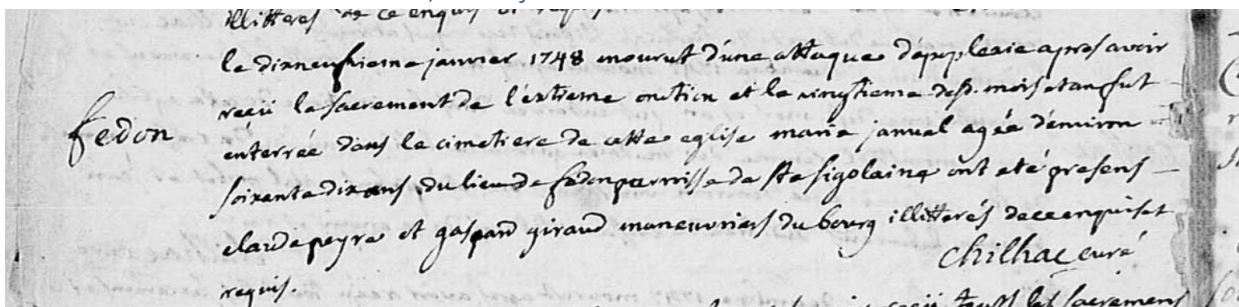 illitteres de ce enquis et requis
le dixneufvieme janvier 1748 mourut d'une attaque d'apoplexie apres avoir
Fedon
reçu le sacrement de l'extreme onction et le vingtieme desd. mois et an fut
enterrée dans le cimetiere de cette eglise marie janual agée d'environ
soixante dix ans du lieu de fedon parroisse de Ste Sigolaine ont été presens
claude peyre et gaspard giraud maneuvriers du bourg illitterés de ce enquis et
requis.
chilhac curé
reçu tous les sacremens